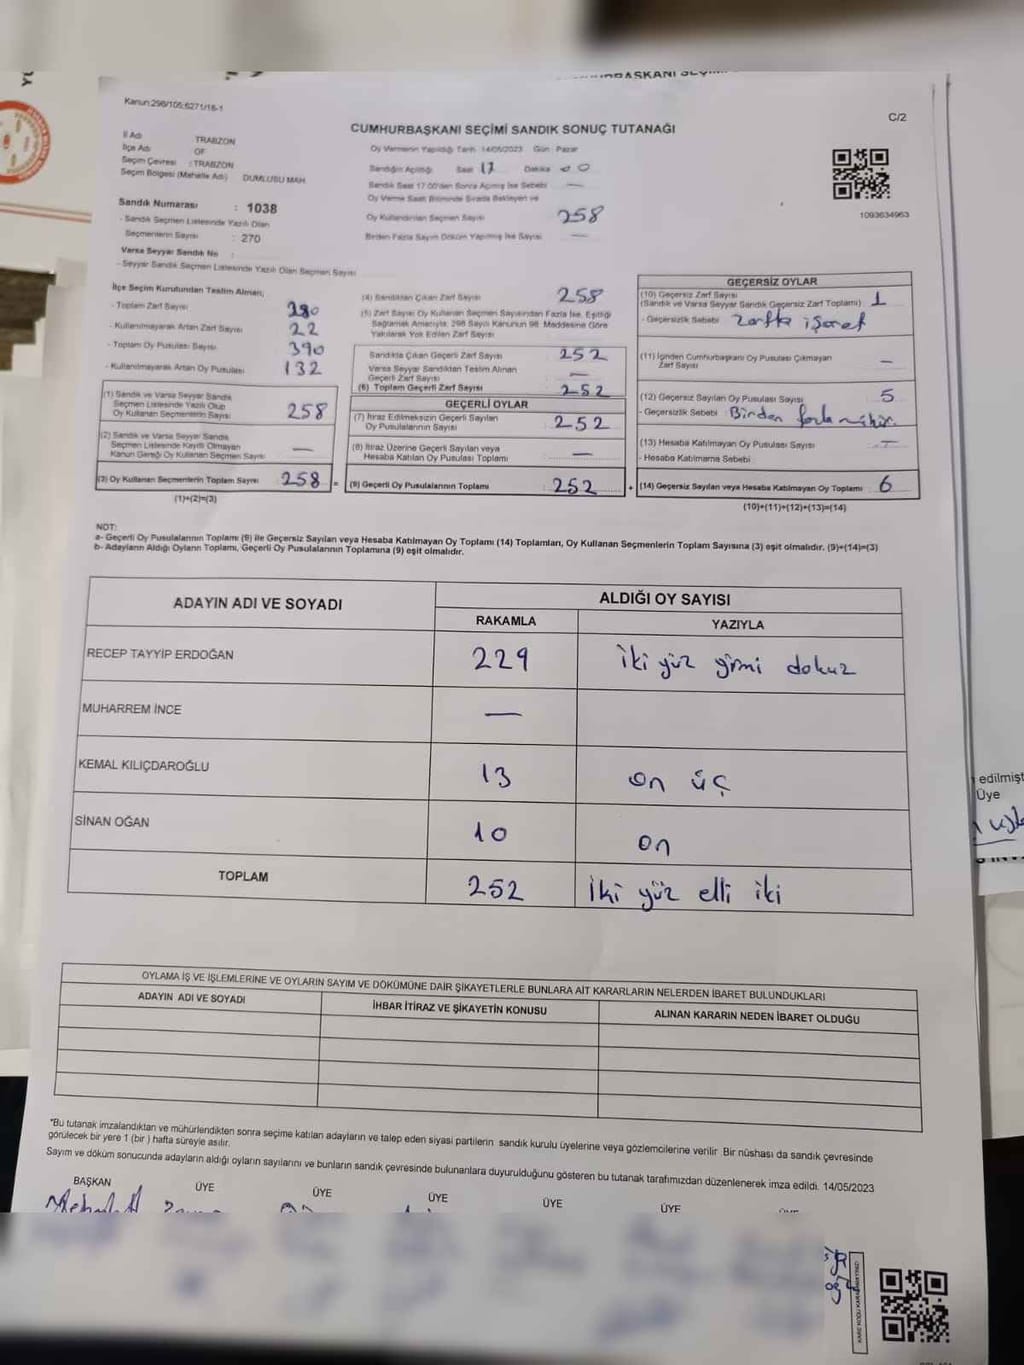 Kanun:298/105;6271/18-1
C/2
CUMHURBAŞKANI SEÇİMİ SANDIK SONUÇ TUTANAĞI
İl Adı TRABZON
İlçe Adı OF
Seçim Çevresi : TRABZON
Seçim Bölgesi (Mahalle Adı) DUMLUSU MAH.
Sandık Numarası : 1038
- Sandık Seçmen Listesinde Yazılı Olan
Seçmenlerin Sayısı : 270
Varsa Seyyar Sandık No :
- Seyyar Sandık Seçmen Listesinde Yazılı Olan Seçmen Sayısı
Oy Vermenin Yapıldığı Tarih :14/05/2023 Gün : Pazar
Sandığın Açıldığı Saat 17 Dakika 00
Sandık Saat 17.00'den Sonra Açılmış İse Sebebi —
Oy Verme Saati Bitiminde Sırada Bekleyen ve
Oy Kullandırılan Seçmen Sayısı 258
Birden Fazla Sayım Döküm Yapılmış İse Sayısı —
1093634963
İlçe Seçim Kurulundan Teslim Alınan;
- Toplam Zarf Sayısı 280
- Kullanılmayarak Artan Zarf Sayısı 22
- Toplam Oy Pusulası Sayısı 390
- Kullanılmayarak Artan Oy Pusulası 132
(1) Sandık ve Varsa Seyyar Sandık
Seçmen Listesinde Yazılı Olup
Oy Kullanan Seçmenlerin Sayısı 258
(2) Sandık ve Varsa Seyyar Sandık
Seçmen Listesinde Kayıtlı Olmayan
Kanun Gereği Oy Kullanan Seçmen Sayısı —
(3) Oy Kullanan Seçmenlerin Toplam Sayısı 258 =
(1)+(2)=(3)
(4) Sandıktan Çıkan Zarf Sayısı 258
(5) Zarf Sayısı Oy Kullanan Seçmen Sayısından Fazla İse, Eşitliği
Sağlamak Amacıyla, 298 Sayılı Kanunun 98. Maddesine Göre
Yakılarak Yok Edilen Zarf Sayısı
Sandıkta Çıkan Geçerli Zarf Sayısı 252
Varsa Seyyar Sandıktan Teslim Alınan
Geçerli Zarf Sayısı —
(6) Toplam Geçerli Zarf Sayısı 252
GEÇERLİ OYLAR
(7) İtiraz Edilmeksizin Geçerli Sayılan
Oy Pusulalarının Sayısı 252
(8) İtiraz Üzerine Geçerli Sayılan veya
Hesaba Katılan Oy Pusulası Toplamı —
(9) Geçerli Oy Pusulalarının Toplamı 252 +
GEÇERSİZ OYLAR
(10) Geçersiz Zarf Sayısı
(Sandık ve Varsa Seyyar Sandık Geçersiz Zarf Toplamı) 1
- Geçersizlik Sebebi Zarfta işaret
(11) İçinden Cumhurbaşkanı Oy Pusulası Çıkmayan
Zarf Sayısı —
(12) Geçersiz Sayılan Oy Pusulası Sayısı 5
- Geçersizlik Sebebi Birden fazla mühür.
(13) Hesaba Katılmayan Oy Pusulası Sayısı —
- Hesaba Katılmama Sebebi
(14) Geçersiz Sayılan veya Hesaba Katılmayan Oy Toplamı 6
(10)+(11)+(12)+(13)=(14)
NOT:
a- Geçerli Oy Pusulalarının Toplamı (9) ile Geçersiz Sayılan veya Hesaba Katılmayan Oy Toplamı (14) Toplamları, Oy Kullanan Seçmenlerin Toplam Sayısına (3) eşit olmalıdır. (9)+(14)=(3)
b- Adayların Aldığı Oyların Toplamı, Geçerli Oy Pusulalarının Toplamına (9) eşit olmalıdır.
ADAYIN ADI VE SOYADI
ALDIĞI OY SAYISI
RAKAMLA YAZIYLA
RECEP TAYYİP ERDOĞAN 229 iki yüz yirmi dokuz
MUHARREM İNCE —
KEMAL KILIÇDAROĞLU 13 on üç
SİNAN OĞAN 10 on
TOPLAM 252 iki yüz elli iki
OYLAMA İŞ VE İŞLEMLERİNE VE OYLARIN SAYIM VE DÖKÜMÜNE DAİR ŞİKAYETLERLE BUNLARA AİT KARARLARIN NELERDEN İBARET BULUNDUKLARI
ADAYIN ADI VE SOYADI İHBAR İTİRAZ VE ŞİKAYETİN KONUSU ALINAN KARARIN NEDEN İBARET OLDUĞU
*Bu tutanak imzalandıktan ve mühürlendikten sonra seçime katılan adayların ve talep eden siyasi partilerin sandık kurulu üyelerine veya gözlemcilerine verilir. Bir nüshası da sandık çevresinde
görülecek bir yere 1 (bir ) hafta süreyle asılır.
Sayım ve döküm sonucunda adayların aldığı oyların sayılarını ve bunların sandık çevresinde bulunanlara duyurulduğunu gösteren bu tutanak tarafımızdan düzenlenerek imza edildi. 14/05/2023
BAŞKAN ÜYE ÜYE ÜYE ÜYE ÜYE
edilmişt
Üye